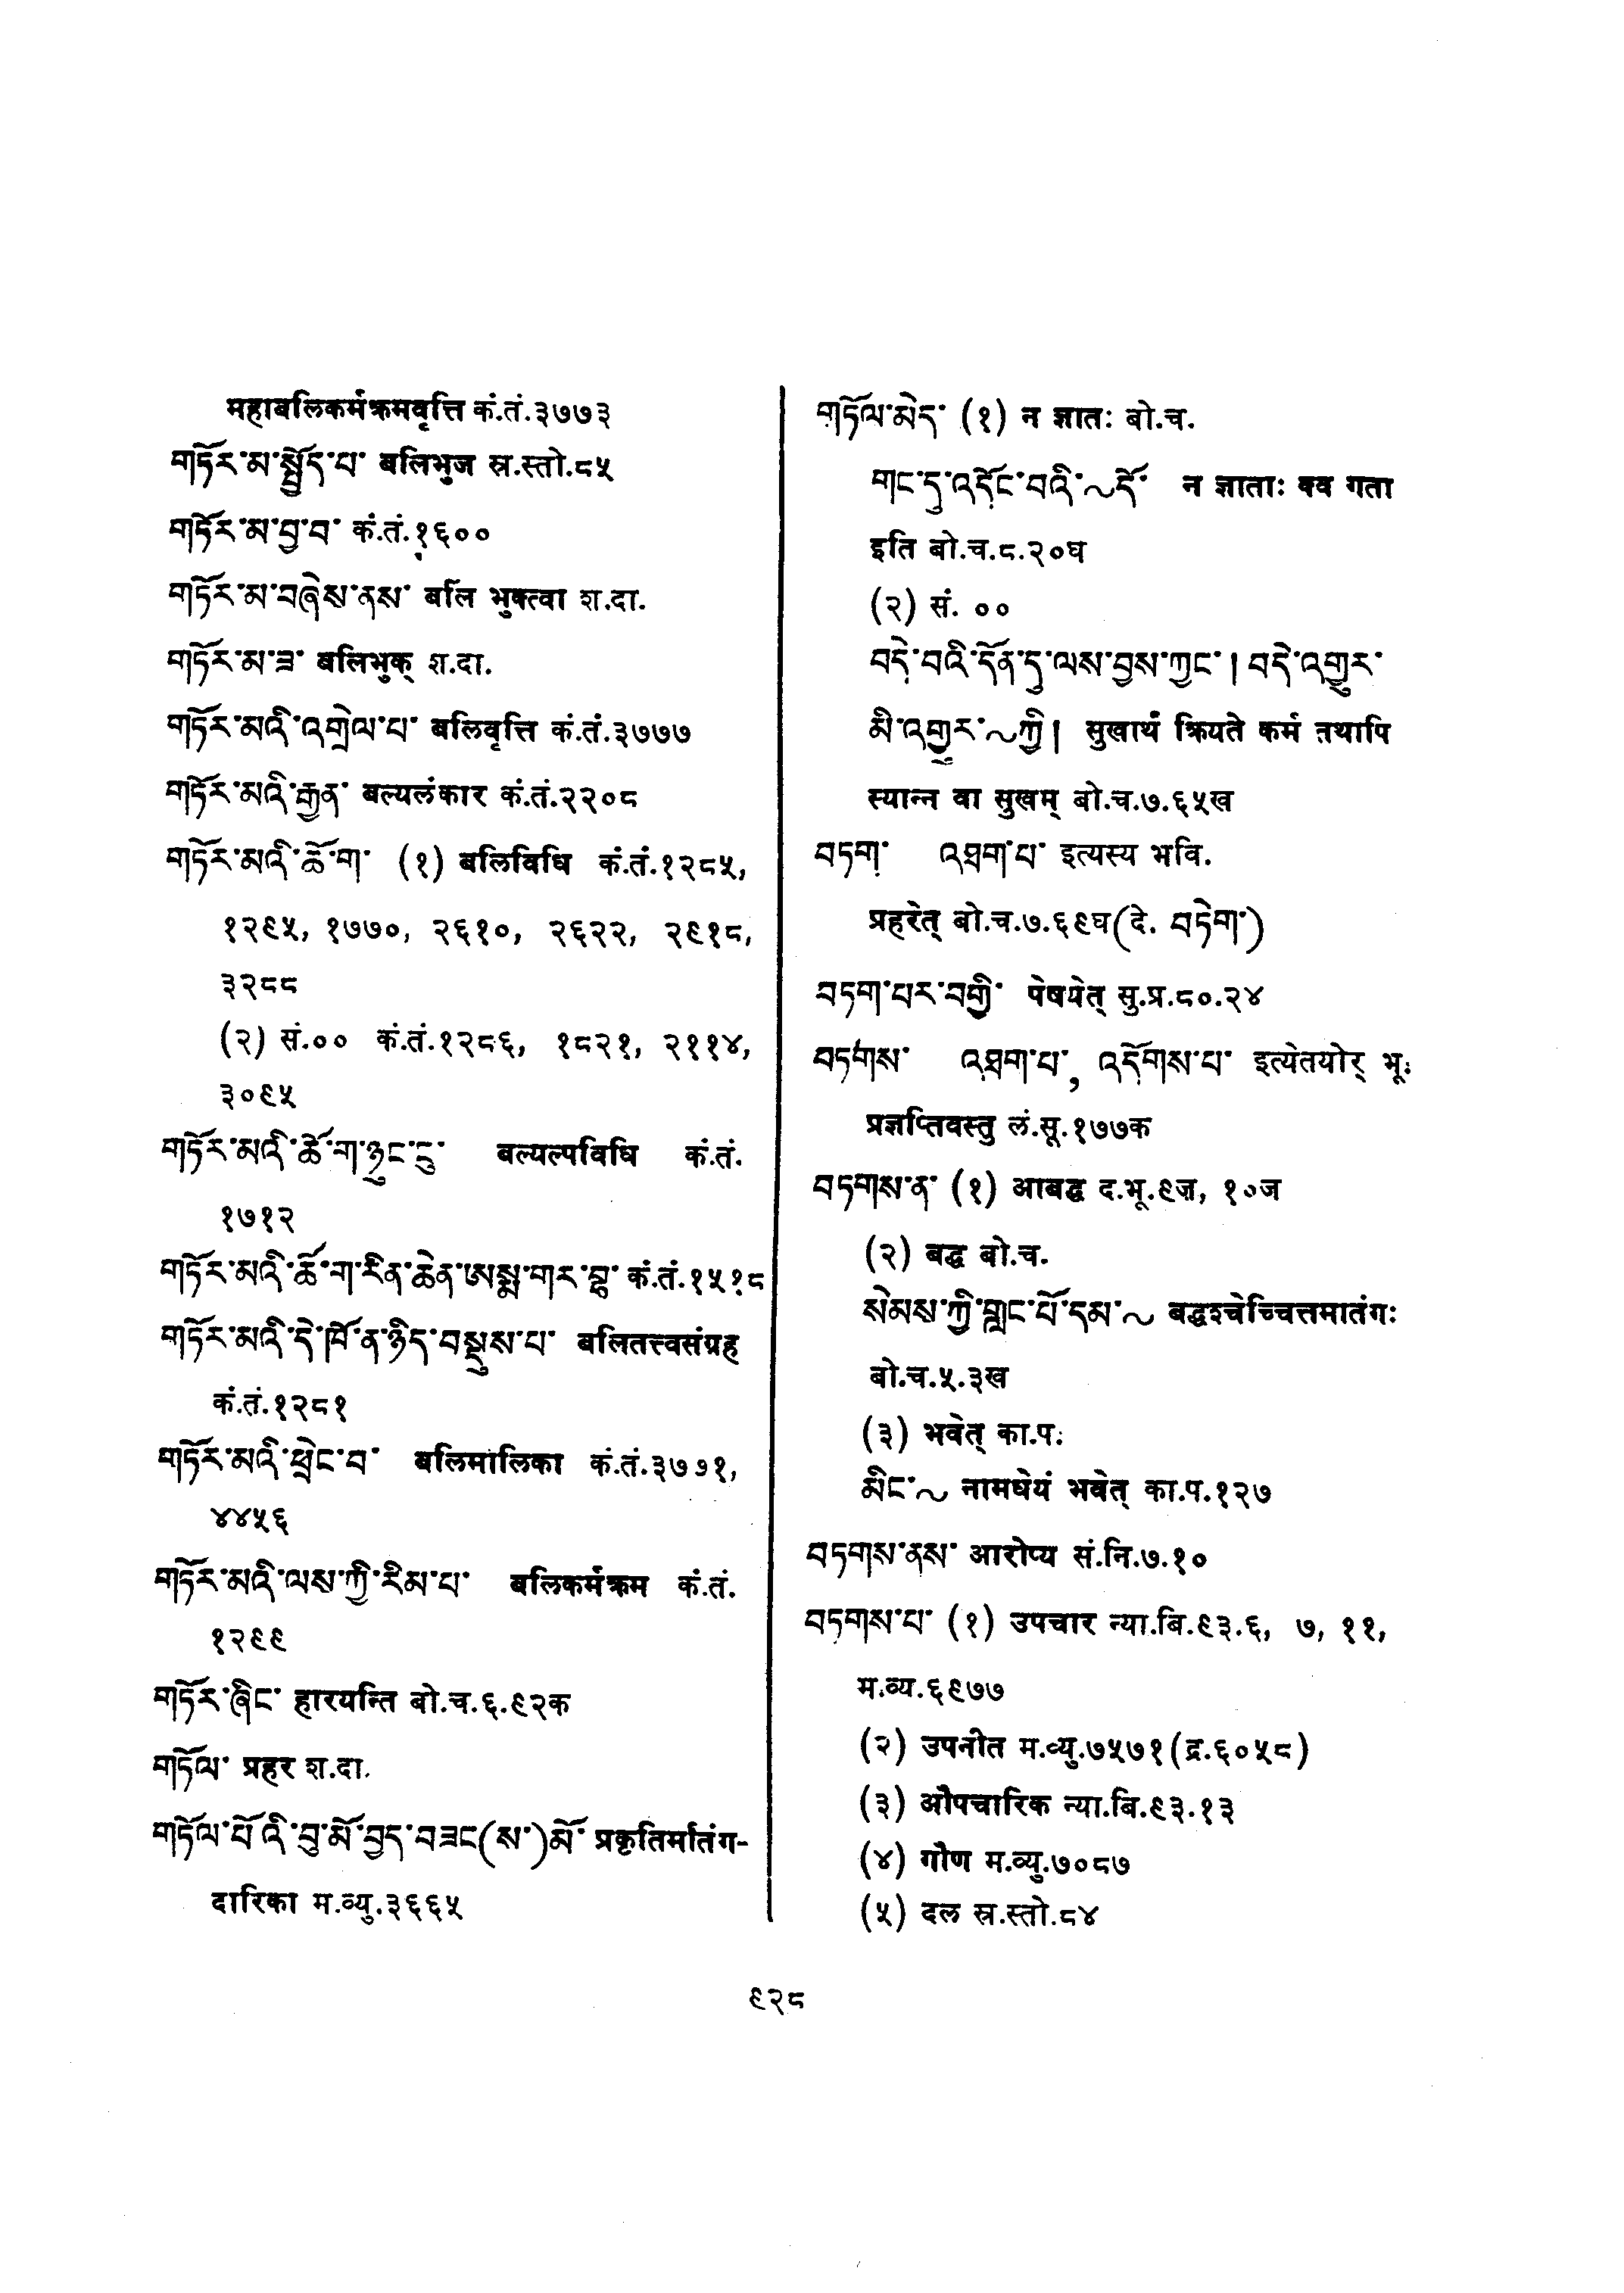 महाबलिकर्मक्रमवृत्ति कं.तं.३७७३
གཏོར་མ་སྤྱོད་པ་ बलिभुज स्र.स्तो.८५
གཏོར་མ་བྱ་བ་ कं.तं.१६००
གཏོར་མ་བཞེས་ནས་ बलिं भुक्त्वा श.दा.
གཏོར་མ་ཟ་ बलिभुक् श.दा.
གཏོར་མའི་འགྲེལ་པ་ बलिवृत्ति कं.तं.३७७७
གཏོར་མའི་རྒྱན་ बल्यलंकार कं.तं.२२०८
གཏོར་མའི་ཆོ་ག་ (१) बलिविधि कं.तं.१२८५,
१२९५, १७७०, २६१०, २६२२, २९१८,
३२८८
(२) सं.०० कं.तं.१२८६, १८२१, २११४,
३०९५
གཏོར་མའི་ཆོ་ག་ཉུང་ངུ་ बल्यल्पविधि कं.तं.
१७१२
གཏོར་མའི་ཆོ་ག་རིན་ཆེན་ कं.तं.१५१८
གཏོར་མའི་དེ་ཁོ་ན་ཉིད་བསྡུས་པ་ बलितत्त्वसंग्रह
कं.तं.१२८१
གཏོར་མའི་ཕྲེང་བ་ बलिमालिका कं.तं.३७७१,
४४५६
གཏོར་མའི་ལས་ཀྱི་རིམ་པ་ बलिकर्मक्रम कं.तं.
१२९९
གཏོར་ཞིང་ हारयन्ति बो.च.६.९२क
གཏོལ་ प्रहर श.दा.
གཏོལ་པོའི་བུ་མོ་བྱད་བཟང(ས་)མོ་ प्रकृतिर्मातंग-
दारिका म.व्यु.३६६५
གཏོལ་མེད་ (१) न ज्ञातः बो.च.
གང་དུ་འདོང་བའི་~དོ་ न ज्ञाताः क्व गता
इति बो.च.८.२०घ
(२) सं. ००
བདེ་བའི་དོན་དུ་ལས་བྱས་ཀྱང་། བདེ་འགྱུར་
མི་འགྱུར་~ཀྱི། सुखार्थं क्रियते कर्म तथापि
स्यान्न वा सुखम् बो.च.७.६५ख
བཏག་ འཐག་པ་ इत्यस्य भवि.
प्रहरेत् बो.च.७.६९घ(दे. བཏེག་)
བཏག་པར་བགྱི་ पेषयेत् सु.प्र.८०.२४
བཏགས་ འཐག་པ་, འདོགས་པ་ इत्येतयोर् भू.
प्रज्ञप्तिवस्तु लं.सू.१७७क
བཏགས་ན་ (१) आबद्ध द.भू.९ज, १०ज
(२) बद्ध बो.च.
སེམས་ཀྱི་གླང་པོ་དམ་~ बद्धश्चेच्चित्तमातंगः
बो.च.५.३ख
(३) भवेत् का.प.
མིང་~ नामधेयं भवेत् का.प.१२७
བཏགས་ནས་ आरोप्य सं.नि.७.१०
བཏགས་པ་ (१) उपचार न्या.बि.९३.६, ७, ११,
म.व्य.६९७७
(२) उपनीत म.व्यु.७५७१(द्र.६०५८)
(३) औपचारिक न्या.बि.९३.१३
(४) गौण म.व्यु.७०८७
(५) दल स्र.स्तो.८४
९२८